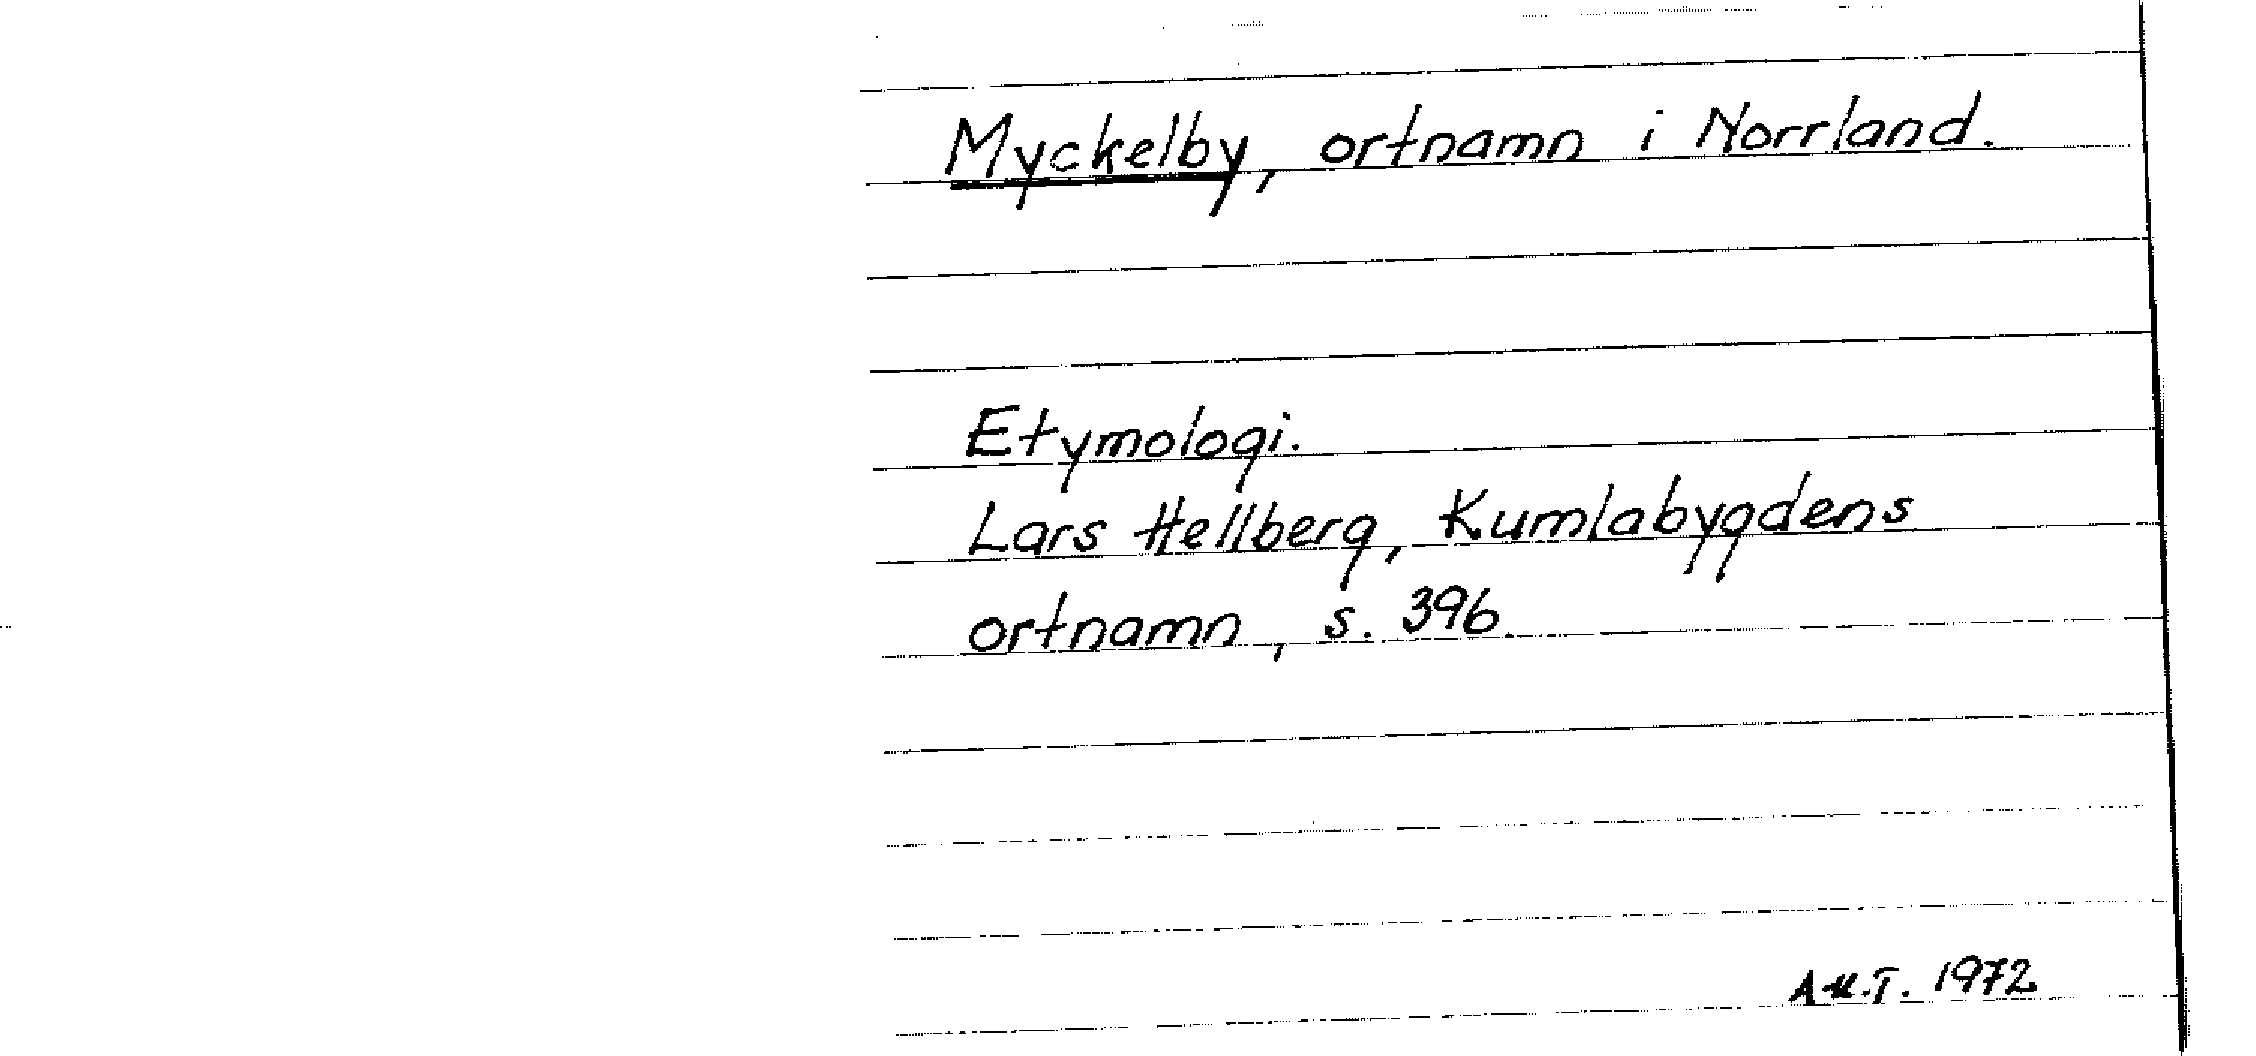 Myckelby, ortnamn i Norrland.
Etymologi.
Lars Hellberg, Kumlabygdens
ortnamn, s. 396.
A-M.T. 1972